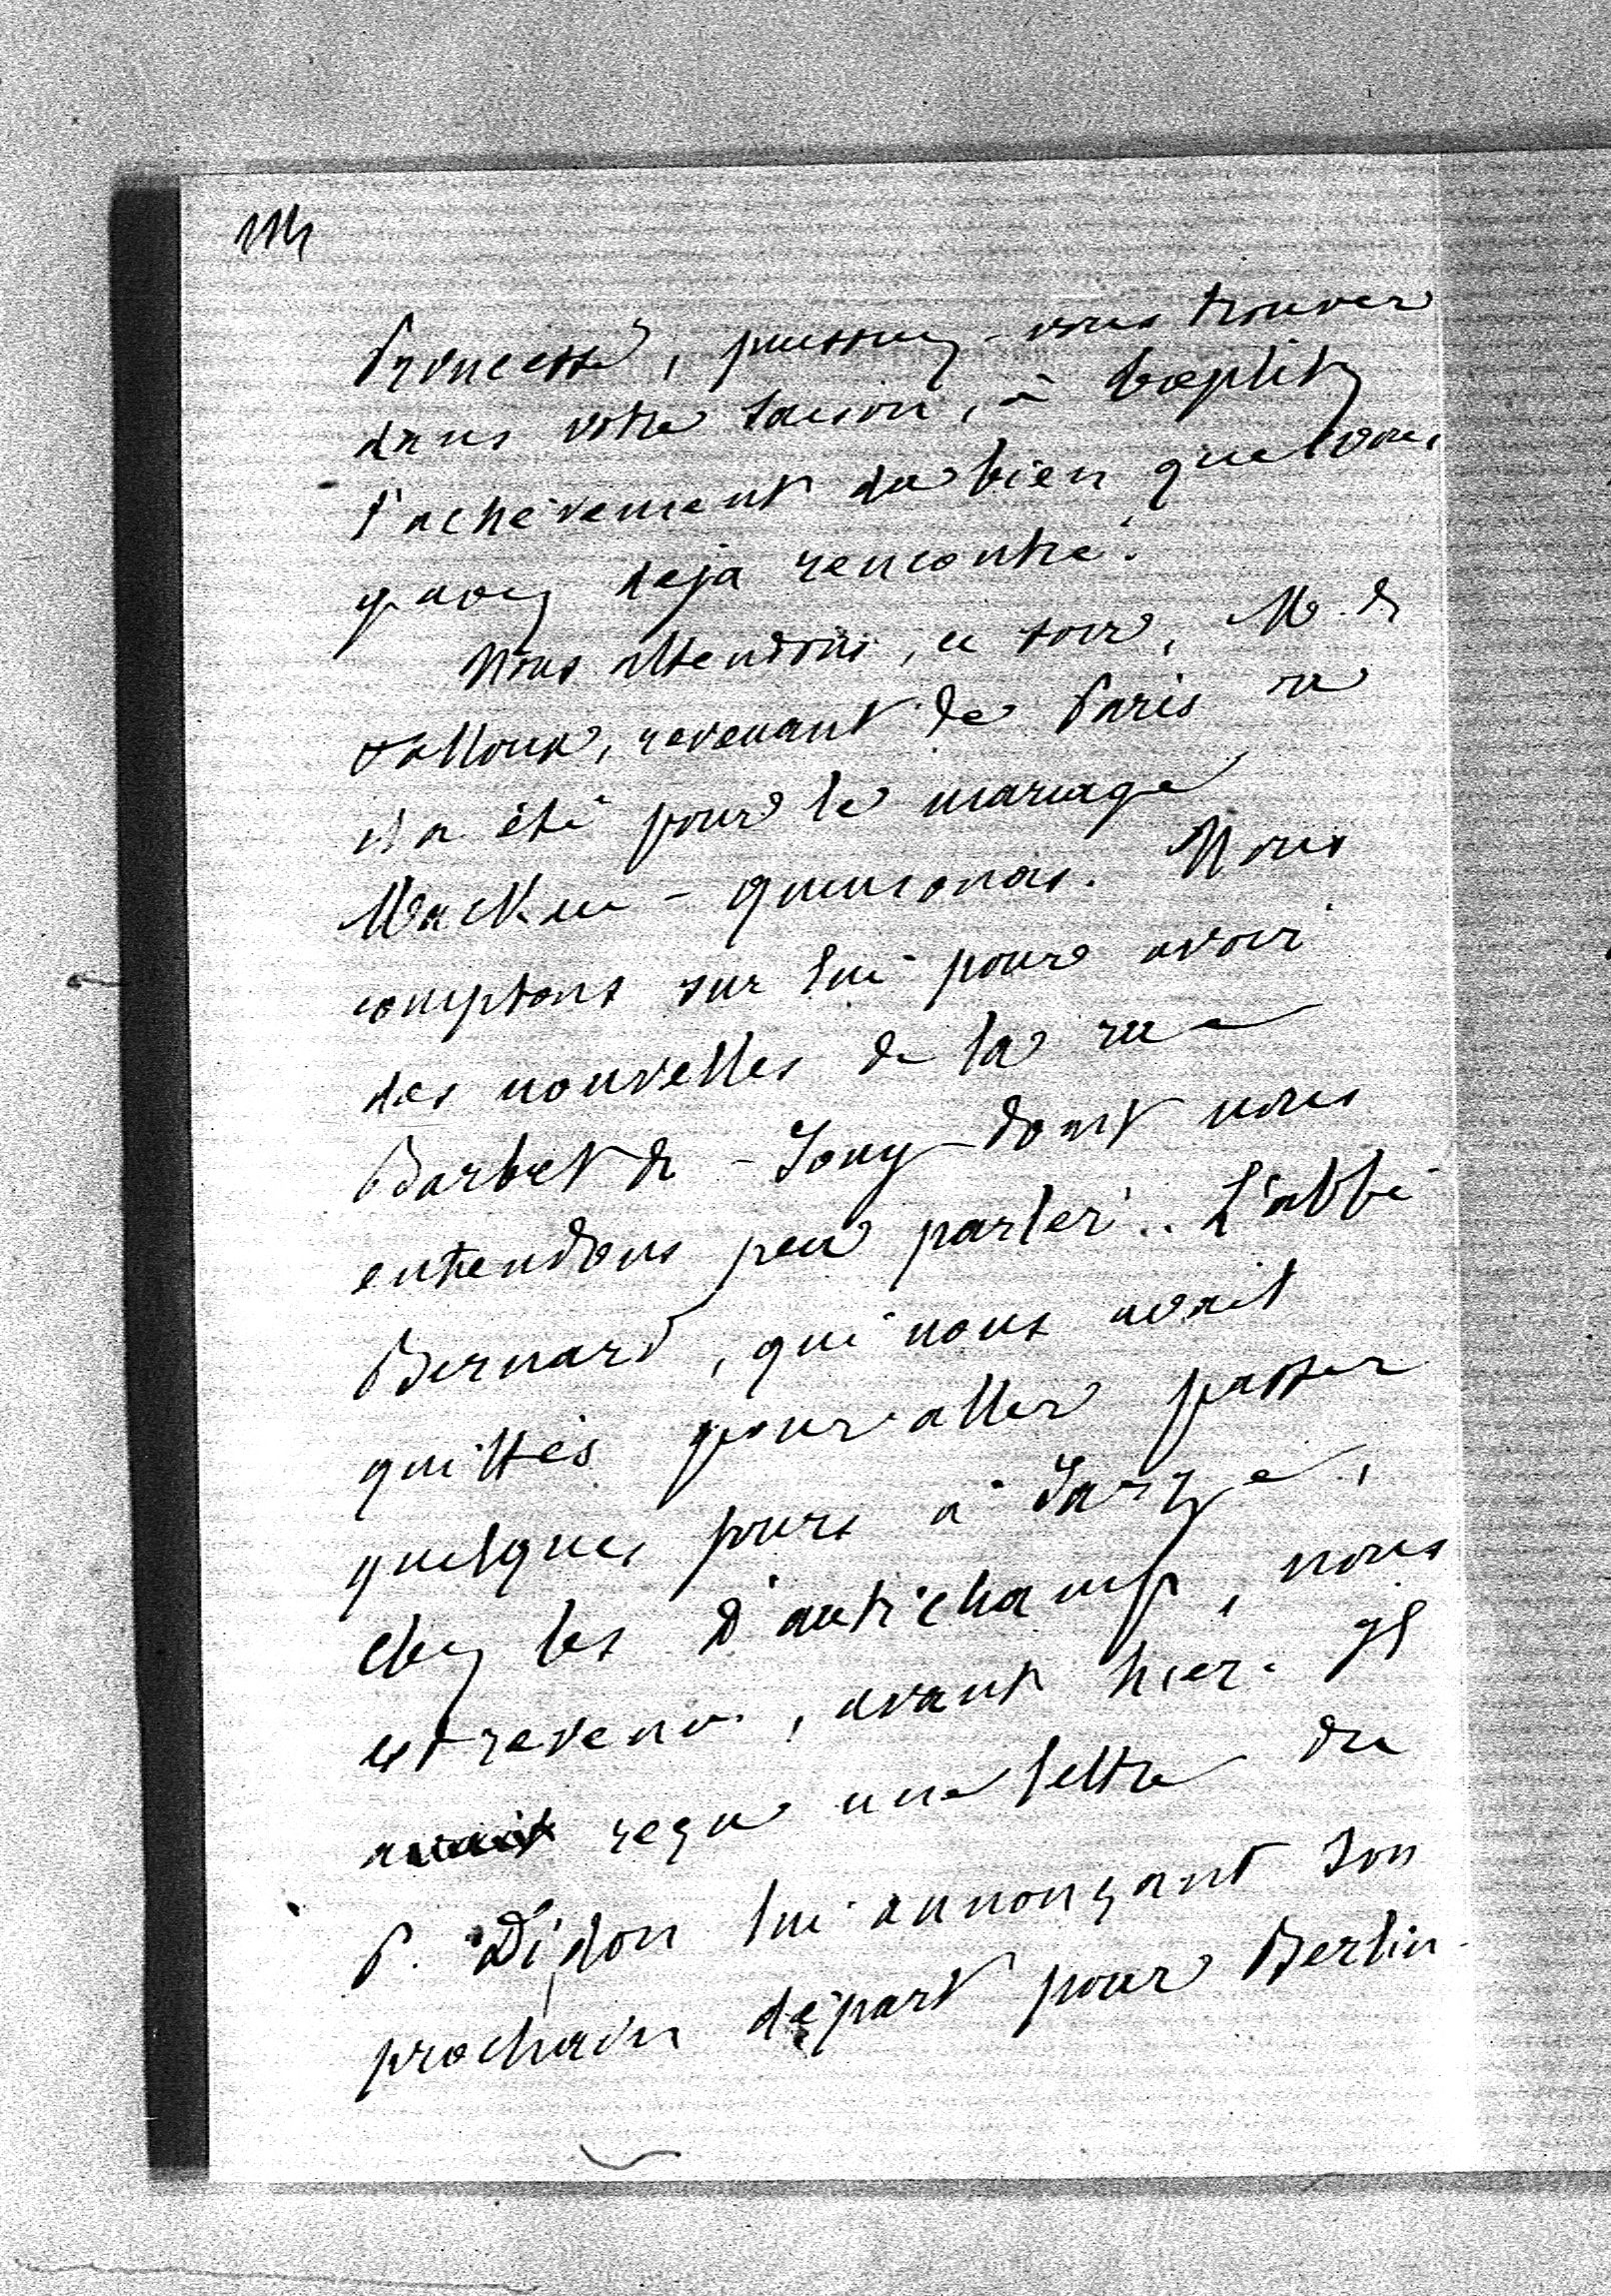 Princesse, puissiez-vous trouver
dans votre saison, à Toeplitz
l'achèvement du bien que vous
y avez déjà rencontré.
Nous attendons, ce soir, M. de
Falloux, revenant de Paris où
il a été pour le mariage
Mackau - Quinsonas. Nous
comptons sur lui pour avoir
des nouvelles de la rue
Barbet de - Jouy dont nous
entendons peu parler.. L'abbé
Bernard, qui nous avait
quittés pour aller passer
quelques jours à Jarzé,
chez les D'autichamp, nous
est revenu, avant hier. Il
avait reçu une lettre du
P. Didon lui annonçant son
prochain départ pour Berlin.